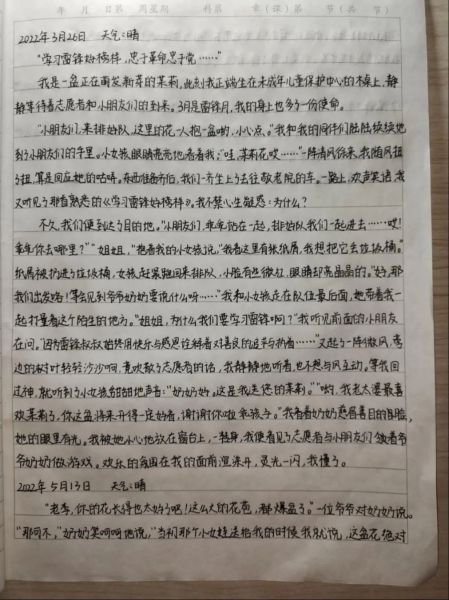 年 月 日第 周星期 科第 章(课)第 节(共 节)
2022年3月26日 天气:晴
"学习雷锋好榜样,忠于革命忠于党……"
我是一盆正在萌发新芽的茉莉,此刻我正端坐在未成年儿童保护中心的木桌上,静
静等待着志愿者和小朋友们的到来。3月是雷锋月,我的身上也多了一份使命。
"小朋友们,来排好队,这里的花一人抱一盆哟,小心点。"我和我的同伴们陆陆续续地
到了小朋友们的手里。小女孩眼睛亮亮地看着我:"哇,茉莉花欸……"一阵清风徐来,我随风扭
了扭,算是回应她的咕哝。东西准备齐后,我们一齐坐上了去往敬老院的车。一路上,欢声笑语,我
又听见了那首熟悉的《学习雷锋好榜样》。我不禁心生疑惑:为什么?
不久,我们便到达了目的地。"小朋友们,乖乖站在一起,排好队我们一起进去……哎!
乖乖你去哪里?""姐姐,"抱着我的小女孩说,"我看这里有张纸屑,我想把它去垃圾桶。"
纸屑被扔进了垃圾桶,女孩赶紧跑回来排队,小脸有些微红,眼睛却亮晶晶的。"好,那
我们出发咯!等会见到爷爷奶奶要说什么呀……"我和小女孩走在队伍最后面,她带着我一
起打量着这个陌生的地方。"姐姐,为什么我们要学习雷锋啊?"我听见前面的小朋友
在问。"因为雷锋叔叔始终用快乐与感恩诠释着对善良的追寻与热爱……"又起了一阵微风,旁
边的树叶轻轻沙沙响,喜欢极了志愿者的话,我静静地听着,也不想与风互动。等我回
过神,就听到了小女孩甜甜地声音:"奶奶好。这是我送您的茉莉。""哟,我老太婆最喜
欢茉莉了,你这盆将来开得一定好看,谢谢你啦乖孩子。"我看着奶奶慈眉善目的面脸,
她的眼里有光。我被她小心地放在窗台上,一转身,我便看见了志愿者与小朋友们领着爷
爷奶奶做游戏。欢乐的氛围在我的面前渲染开,灵光一闪,我懂了。
2022年5月13日 天气:晴
"老李,你的花长得也太好了吧!这么大的花苞,都爆盆了。"一位爷爷对奶奶说。
"那可不,"奶奶笑呵呵地说,"当初那个小女娃送给我的时候我就说,这盆花绝对